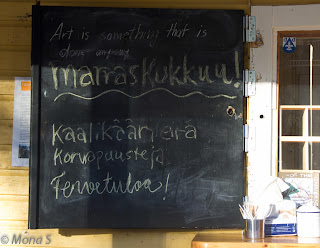 Art is something that is
done anyway
marraskukkuu!
Kaalikääryleitä
Korvapuusteja
Tervetuloa!
© Mona S